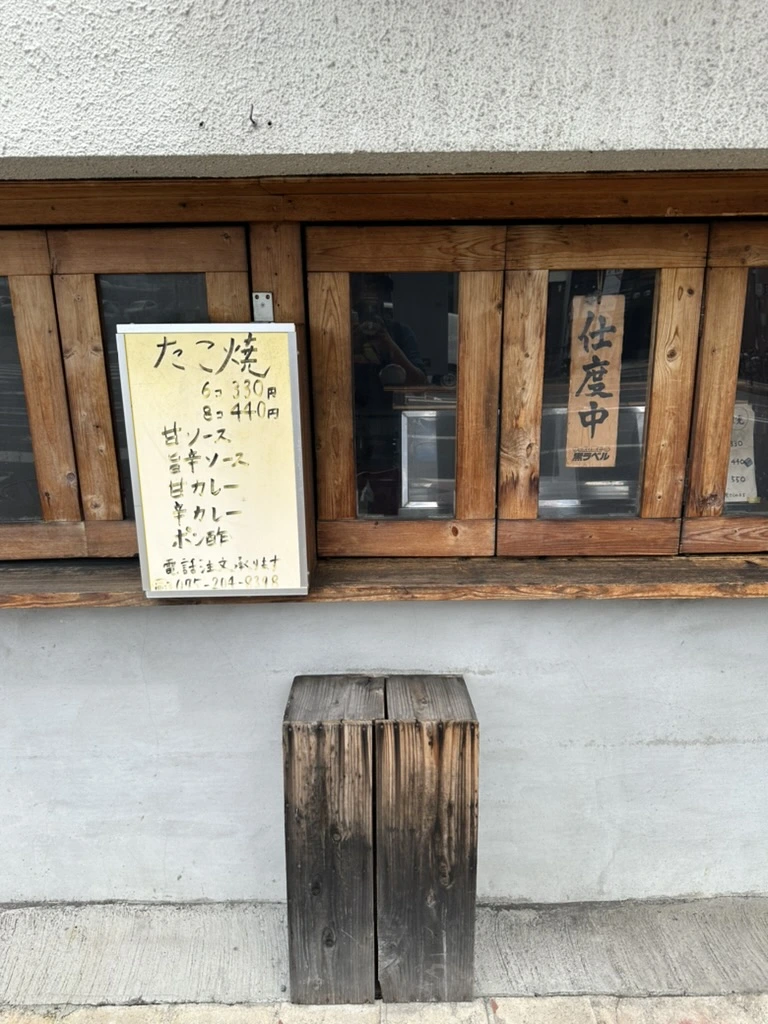 たこ焼
6コ 330円
8コ 440円
甘ソース
旨辛ソース
甘カレー
辛カレー
ポン酢
電話注文承ります
075-204-8398
仕度中
黒ラベル